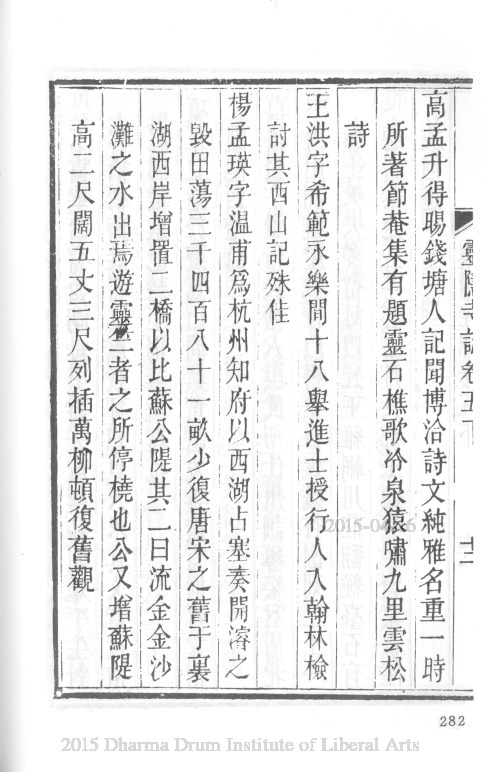 靈隱寺誌卷五下
十二
高孟升得暘錢塘人記聞博洽詩文純雅名重一時
所著節菴集有題靈石樵歌冷泉猿嘯九里雲松
詩
王洪字希範永樂間十八舉進士授行人入翰林檢
討其西山記殊佳
楊孟瑛字温甫爲杭州知府以西湖占塞奏開濬之
毀田蕩三千四百八十一畝少復唐宋之舊于裏
湖西岸增置二橋以比蘇公隄其二曰流金金沙
灘之水出焉遊靈竺者之所停橈也公又增蘇隄
高二尺闊五丈三尺列插萬柳頓復舊觀
282
2015 Dharma Drum Institute of Liberal Arts